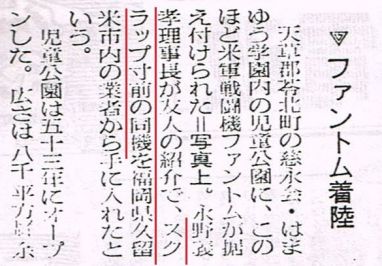 ▽ファントム着陸
天草郡苓北町の慈永会・はま
ゆう学園内の児童公園に、この
ほど米軍戦闘機ファントムが据
え付けられた＝写真上。永野義
孝理事長が友人の紹介で、スク
ラップ寸前の同機を福岡県久留
米市内の業者から手に入れたと
いう。
児童公園は五十三年にオープ
ンした。広さは八千平方